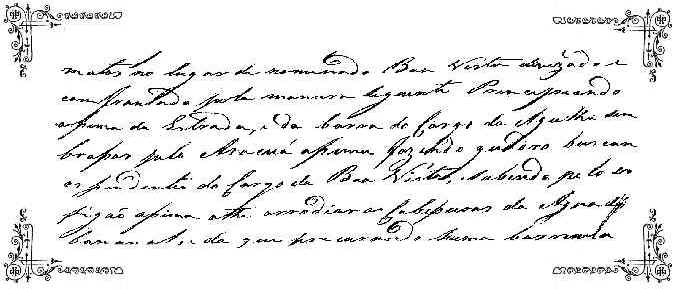 mattos no lugar denominado Boa Vista devizado e
confrontado pela maneira seguinte Principiando
asima da Estrada, e da barra do Corgo da Agulha
braças pelo Aracuá asima fazendo quadro buscan
os pendentes do Corgo da Boa Vista, subindo pelo es
pigão asima athe arrodiar as Cabiseiras da Agoa do
bananal, e da qui procurando huma barroca